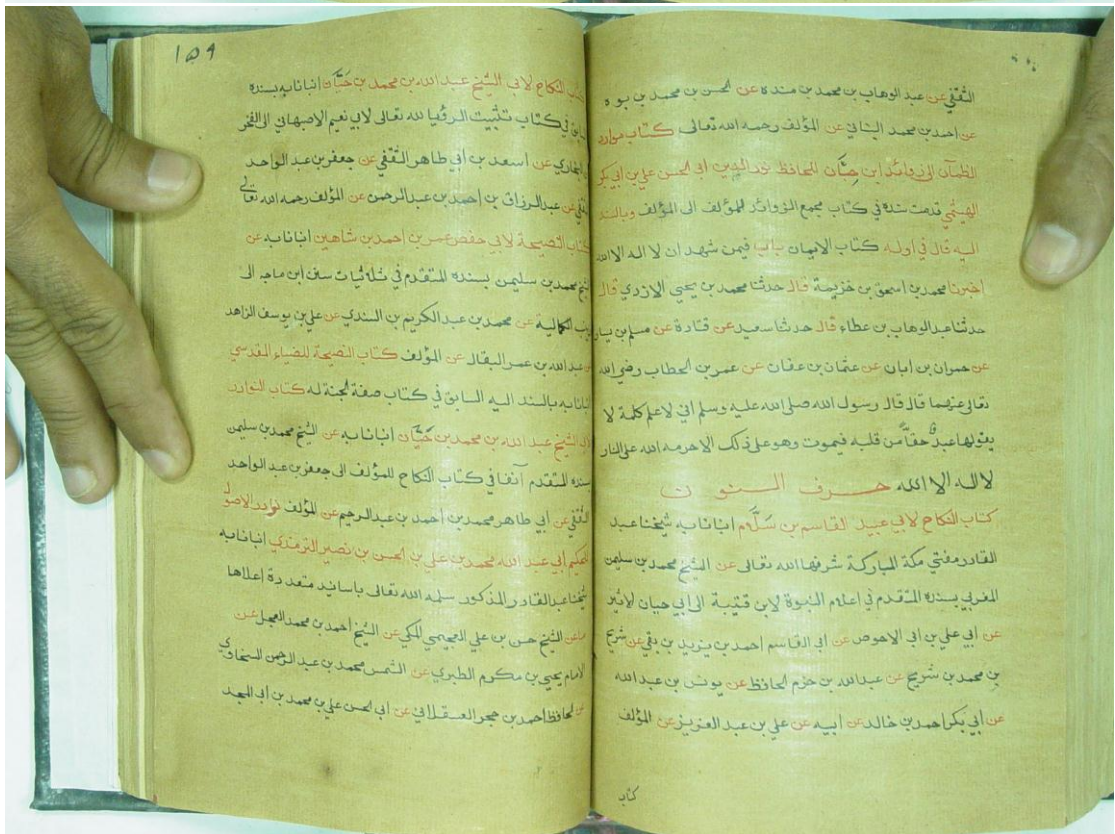 الثقفي عن عبد الوهاب بن محمد بن مندة عن الحسن بن محمد بن بوه
عن احمد بن محمد عن المؤلف رحمه الله تعالى كتاب موارد
الظمآن الى زوائد ابن حبّان للحافظ نور الدين ابي الحسن علي بن ابي بكر
الهيثمي تقدمت سنده في كتاب مجمع الزوائد للمؤلف الى المؤلف وبالسند
اليه قال في اوله كتاب الايمان باب فيمن شهد ان لا اله الا الله
اخبرنا محمد بن اسحق بن خزيمة قال حدثنا محمد بن يحيى الازدي قال
حدثنا عبد الوهاب بن عطاء قال حدثنا سعيد عن قتادة عن مسلم بن يسار
عن حمران بن ابان عن عثمان بن عفان عن عمر بن الخطاب رضي الله
تعالى عنهما قال قال رسول الله صلى الله عليه وسلم اني لاعلم كلمة لا
يقولها عبدٌ حقاً من قلبه فيموت وهو على ذلك الا حرمه الله على النار
لا اله الا الله حرف النون
كتاب النكاح لابي عبيد القاسم بن سَلَّام انبانا به شيخنا عبد
القادر مفتي مكة المباركة شرفها الله تعالى عن الشيخ محمد بن سليمن
المغربي بسنده المتقدم في اعلام النبوة لابن قتيبة الى ابي حيان الاثير
عن ابي علي بن ابي الاحوص عن ابي القاسم احمد بن يزيد بن بقي عن شريح
بن محمد بن شريح عن عبد الله بن حزم الحافظ عن يونس بن عبد الله
عن ابي بكر احمد بن خالد عن ابيه عن علي بن عبد العزيز عن المؤلف
كتاب
١٥٩
كتاب النكاح لابي الشيخ عبد الله بن محمد بن حَيَّان انبانا به بسنده
السابق في كتاب تثبيت الرؤيا لله تعالى لابي نعيم الاصبهاني الى الفخر
بن البخاري عن اسعد بن ابي طاهر الثقفي عن جعفر بن عبد الواحد
الثقفي عن عبد الرزاق بن احمد بن عبد الرحمن عن المؤلف رحمه الله تعالى
كتاب النصيحة لابي حفص عمر بن احمد بن شاهين انبانا به عن
الشيخ محمد بن سليمن بسنده المتقدم في ثلاثيات سنن ابن ماجه الى
زينب الكمالية عن محمد بن عبد الكريم بن السندي عن علي بن يوسف الزاهد
عن عبد الله بن عمر البقال عن المؤلف كتاب النصيحة للضياء المقدسي
انبانا به بالسند اليه السابق في كتاب صفة الجنة له كتاب النوادر
لابي الشيخ عبد الله بن محمد بن حَيَّان انبانا به عن الشيخ محمد بن سليمن
بسنده المتقدم آنفا في كتاب النكاح للمؤلف الى جعفر بن عبد الواحد
الثقفي عن ابي طاهر محمد بن احمد بن عبد الرحيم عن المؤلف نوادر الاصول
للحكيم ابي عبد الله محمد بن علي بن الحسن بن نصير الترمذي انبانا به
شيخنا عبد القادر المذكور سلمه الله تعالى باساند متعددة اعلاها
عن الشيخ حسن بن علي العجيمي المكي عن الشيخ احمد بن محمد العجل عن
الامام يحيى بن مكرم الطبري عن الشمس محمد بن عبد الرحمن السخاوي
عن الحافظ احمد بن حجر العسقلاني عن ابي الحسن علي بن محمد بن ابي المجد